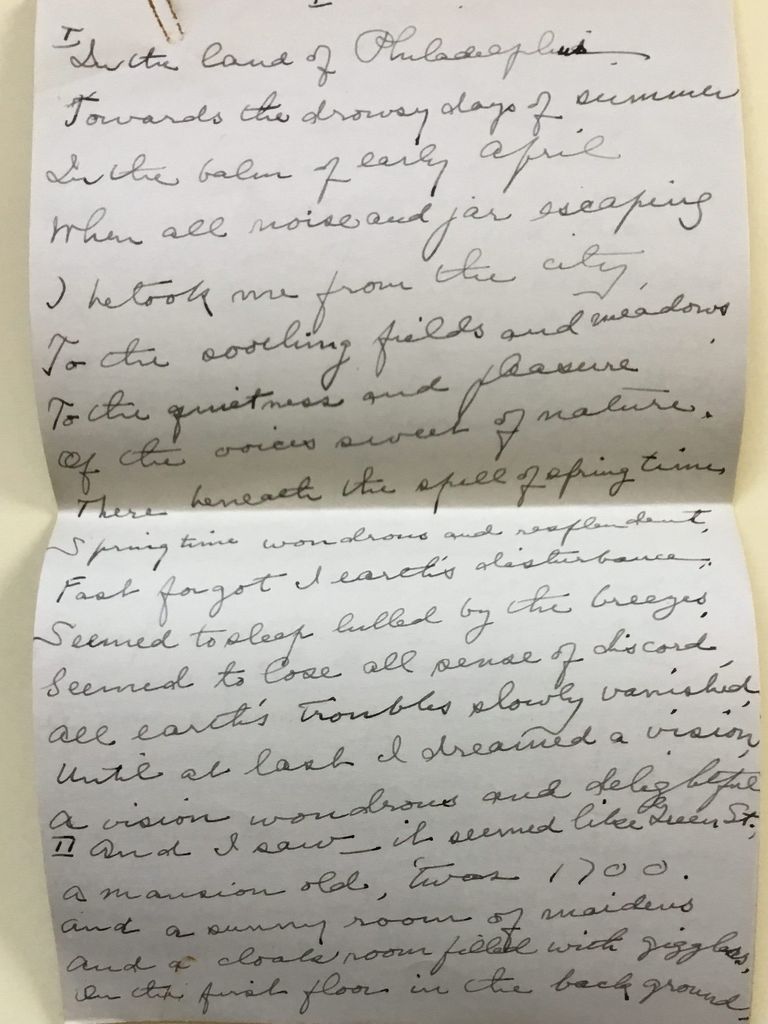 I
In the land of Philadelphia
Towards the drowsy days of summer
In the balm of early April
When all noise and jar escaping
I betook me from the city,
To the soothing fields and meadows
To the quietness and pleasure
Of the voices sweet of nature.
There beneath the spell of spring time,
Springtime wondrous and resplendent,
Fast forgot I earth's disturbance,
Seemed to sleep lulled by the breezes,
Seemed to lose all sense of discord,
All earth's troubles slowly vanished,
Until at last I dreamed a vision,
A vision wondrous and delightful
II And I saw - it seemed like Green St.,
A mansion old, 'twas 1700.
And a sunny room of maidens
And a cloak room filled with giggles,
On the first floor in the back ground,